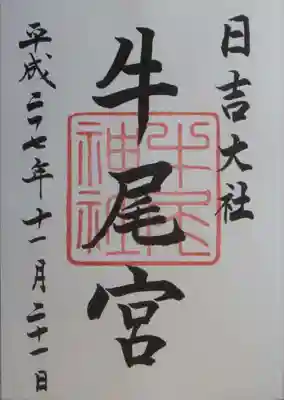 日吉大社
牛尾宮
牛尾神社
平成二十七年十一月二十一日